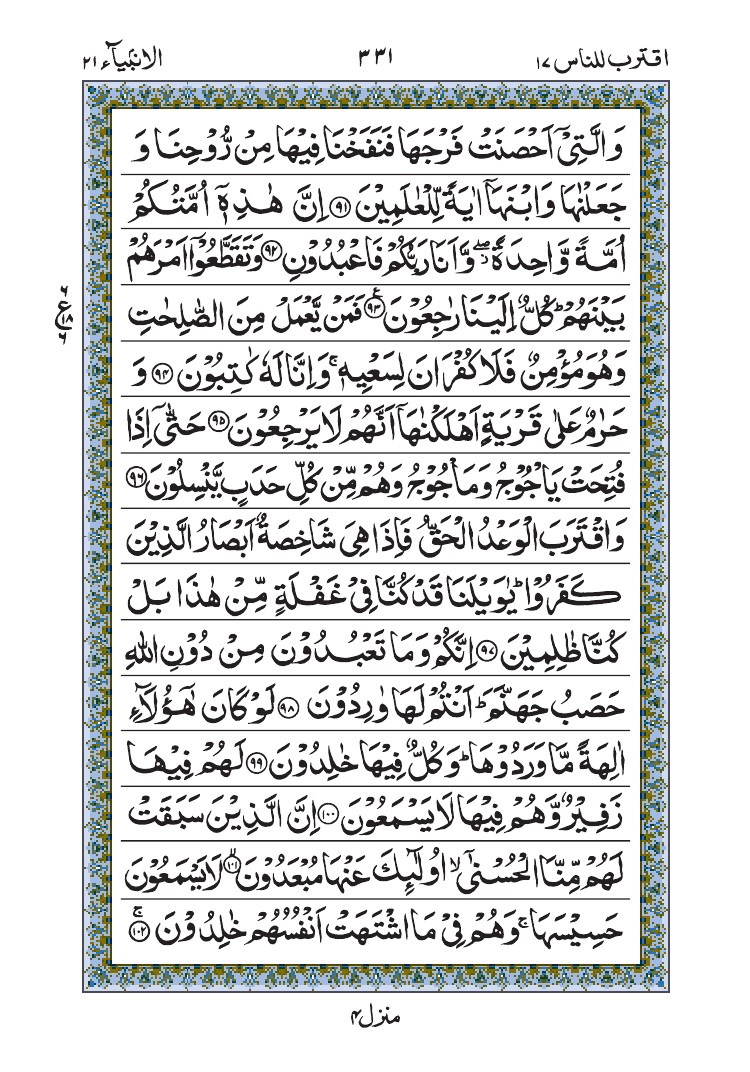 اقترب للناس ۱۷ ۳۳۱ الانبیآء ۲۱
وَالَّتِیْۤ اَحْصَنَتْ فَرْجَهَا فَنَفَخْنَا فِیْهَا مِنْ رُّوْحِنَا وَ
جَعَلْنٰهَا وَابْنَهَاۤ اٰیَةً لِّلْعٰلَمِیْنَ ﴿۹۱﴾ اِنَّ هٰذِهٖۤ اُمَّتُكُمْ
اُمَّةً وَّاحِدَةً ۖ وَّاَنَا رَبُّكُمْ فَاعْبُدُوْنِ ﴿۹۲﴾ وَتَقَطَّعُوْۤا اَمْرَهُمْ
بَیْنَهُمْ ؕ كُلٌّ اِلَیْنَا رٰجِعُوْنَ ﴿۹۳﴾ۧ فَمَنْ یَّعْمَلْ مِنَ الصّٰلِحٰتِ
۶ ع ۱۸ ۶
وَهُوَ مُؤْمِنٌ فَلَا كُفْرَانَ لِسَعْیِهٖ ۚ وَاِنَّا لَهٗ كٰتِبُوْنَ ﴿۹۴﴾ وَ
حَرٰمٌ عَلٰی قَرْیَةٍ اَهْلَكْنٰهَاۤ اَنَّهُمْ لَا یَرْجِعُوْنَ ﴿۹۵﴾ حَتّٰۤی اِذَا
فُتِحَتْ یَاْجُوْجُ وَمَاْجُوْجُ وَهُمْ مِّنْ كُلِّ حَدَبٍ یَّنْسِلُوْنَ ﴿۹۶﴾
وَاقْتَرَبَ الْوَعْدُ الْحَقُّ فَاِذَا هِیَ شَاخِصَةٌ اَبْصَارُ الَّذِیْنَ
كَفَرُوْا ؕ یٰوَیْلَنَا قَدْ كُنَّا فِیْ غَفْلَةٍ مِّنْ هٰذَا بَلْ
كُنَّا ظٰلِمِیْنَ ﴿۹۷﴾ اِنَّكُمْ وَمَا تَعْبُدُوْنَ مِنْ دُوْنِ اللّٰهِ
حَصَبُ جَهَنَّمَ ؕ اَنْتُمْ لَهَا وٰرِدُوْنَ ﴿۹۸﴾ لَوْ كَانَ هٰۤؤُلَآءِ
اٰلِهَةً مَّا وَرَدُوْهَا ؕ وَكُلٌّ فِیْهَا خٰلِدُوْنَ ﴿۹۹﴾ لَهُمْ فِیْهَا
زَفِیْرٌ وَّهُمْ فِیْهَا لَا یَسْمَعُوْنَ ﴿۱۰۰﴾ اِنَّ الَّذِیْنَ سَبَقَتْ
لَهُمْ مِّنَّا الْحُسْنٰۤی ۙ اُولٰٓئِكَ عَنْهَا مُبْعَدُوْنَ ﴿۱۰۱﴾ۙ لَا یَسْمَعُوْنَ
حَسِیْسَهَا ۚ وَهُمْ فِیْ مَا اشْتَهَتْ اَنْفُسُهُمْ خٰلِدُوْنَ ﴿۱۰۲﴾ۚ
منزل ۴